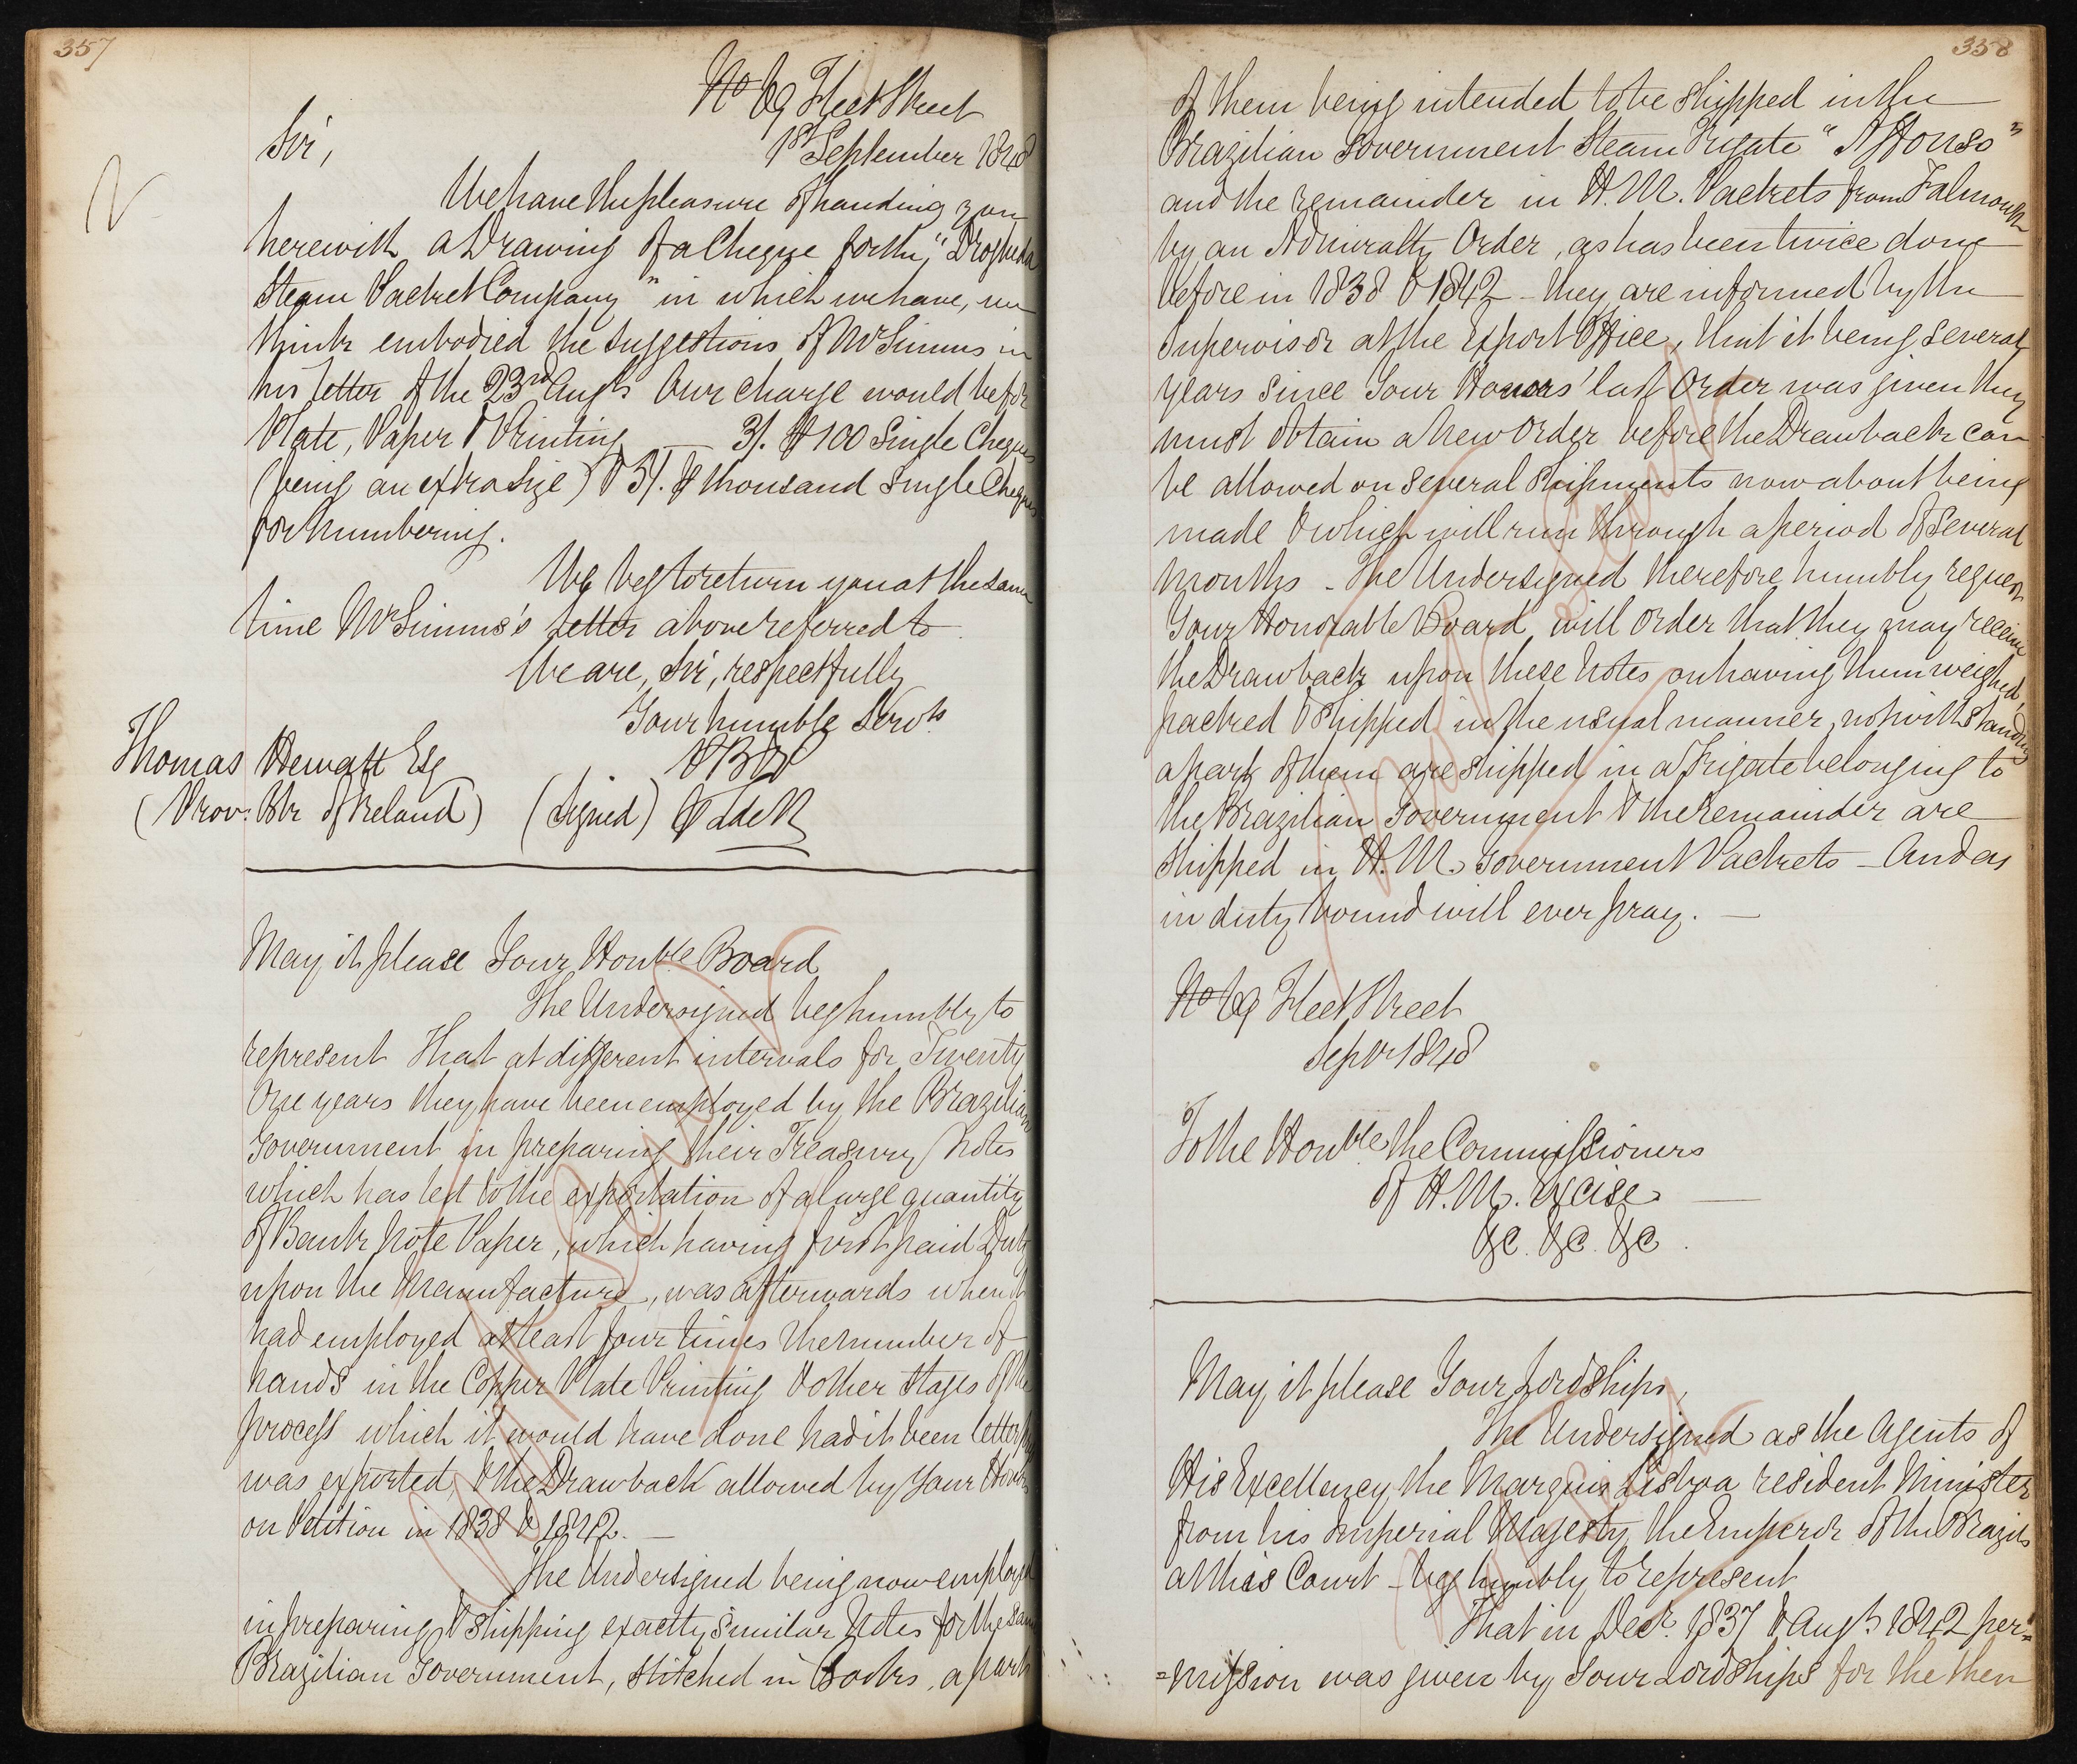 357
No 69 Fleet Street
Sir,
1st September 1848
We have the pleasure of handing you
herewith a Drawing of a Cheque for the "Drogheda
Steam Packet Company" in which we have, we
think embodied the suggestions of Mr Simms in
his letter of the 23rd Augt. Our charge would be for
Plate, Paper & Printing — 3/. ⅌ 100 Single Cheques
(being an extra size) & 5/. ⅌ thousand Single Cheques
for Numbering.
We beg to return you at the same
time Mr Simms's letter above referred to
We are, Sir, respectfully
Your humble Servts
PB&P
Thomas Hewatt Esq
(Prov: Bk of Ireland) (signed)
May it please Your Honble Board
The Undersigned beg humbly to
represent That at different intervals for Twenty
One years they have been employed by the Brazilian
Government in preparing their Treasury Notes
which has led to the exportation of a large quantity
of Bank Note Paper, which having first paid Duty
upon the Manufacture, was afterwards when it
had employed at least four times the number of
hands in the Copper Plate Printing & other stages of the
process which it would have done had it been letter
was exported, & the Drawback allowed by Your Honors
on Petition in 1838 & 1842. —
The Undersigned being now employed
in preparing & shipping exactly similar Notes for the same
Brazilian Government, stitched in Books, a part
358
of them being intended to be shipped in the
Brazilian Government Steam Frigate "Affonso"
and the remainder in H.M. Packets from Falmouth
by an Admiralty Order, as has been twice done
before in 1838 & 1842 – they are informed by the
Supervisor at the Export Office, that it being several
years since Your Honors' last Order was given they
must obtain a New Order before the Drawback can
be allowed on several Shipments now about being
made & which will run through a period of several
months – The Undersigned therefore humbly request
Your Honorable Board will order that they may receive
the Drawback upon these Notes on having them weighed,
packed & shipped in the usual manner, notwithstanding
a part of them are shipped in a Frigate belonging to
the Brazilian Government & the remainder are
shipped in H.M. Government Packets – And as
in duty bound will ever pray. —
No 69 Fleet Street
Sepr 1848
To the Honble the Commissioners
of H.M. Excise —
&c. &c. &c.
May it please Your Lordships,
The Undersigned as the Agents of
His Excellency the Marquis Lisboa resident Minister
from his Imperial Majesty the Emperor of the Brazils
at this Court – beg humbly to represent
That in Decr. 1837 & Augt 1842 per=
=mission was given by Your Lordships for the then